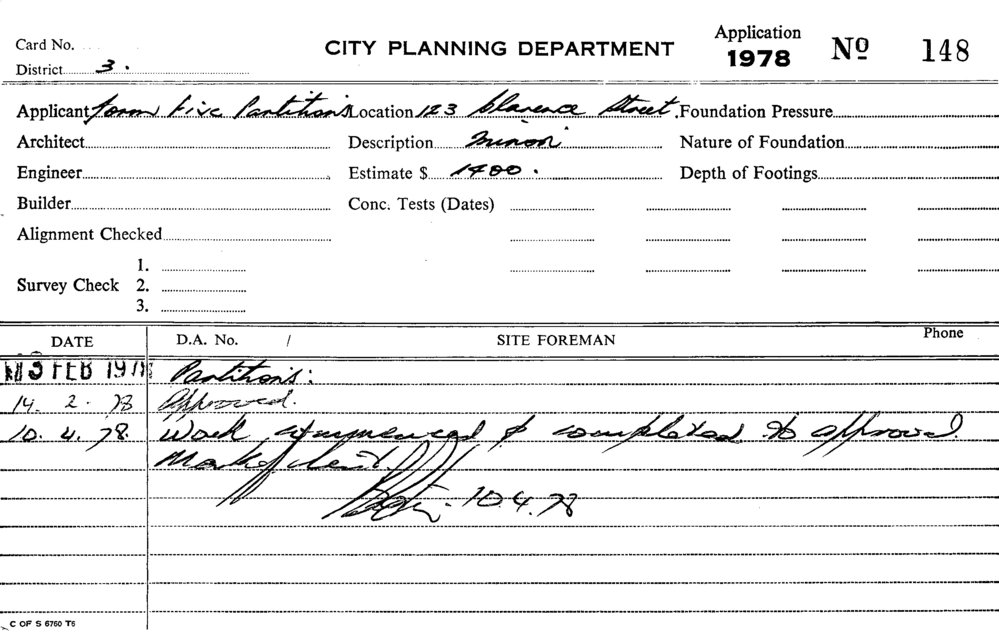 Card No.
CITY PLANNING DEPARTMENT
Application
1978 Nº 148
District 3.
Applicant Form Five Partitions Location 123 Clarence Street. Foundation Pressure
Architect Description Minor Nature of Foundation
Engineer Estimate $ 1400. Depth of Footings
Builder Conc. Tests (Dates)
Alignment Checked
1.
Survey Check 2.
3.
DATE D.A. No. / SITE FOREMAN Phone
FEB 197 Partitions:
14. 2. 78 Approved.
10. 4. 78. Work commenced & completed to approval.
10.4.78
C OF S 6760 T6